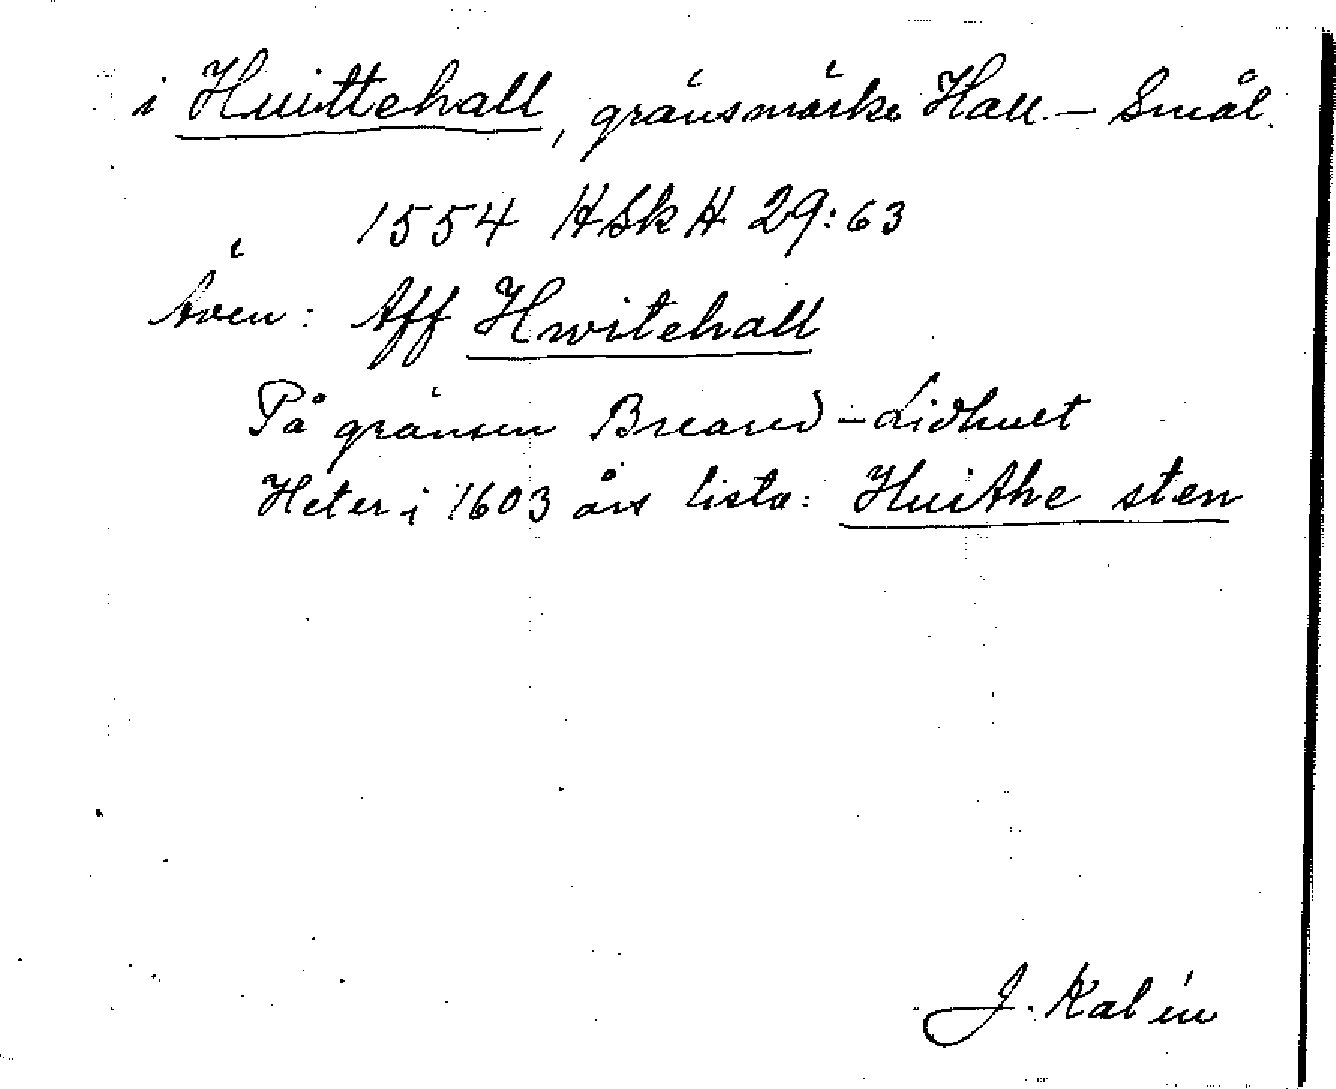 i Huittehall, gränsmärke Hall.–Smål.
1554 HSkH 29:63
Även: Aff Hwitehall
På gränsen Breared–Lidhult
Heter i 1603 års lista: Huithe sten
J. Kalén